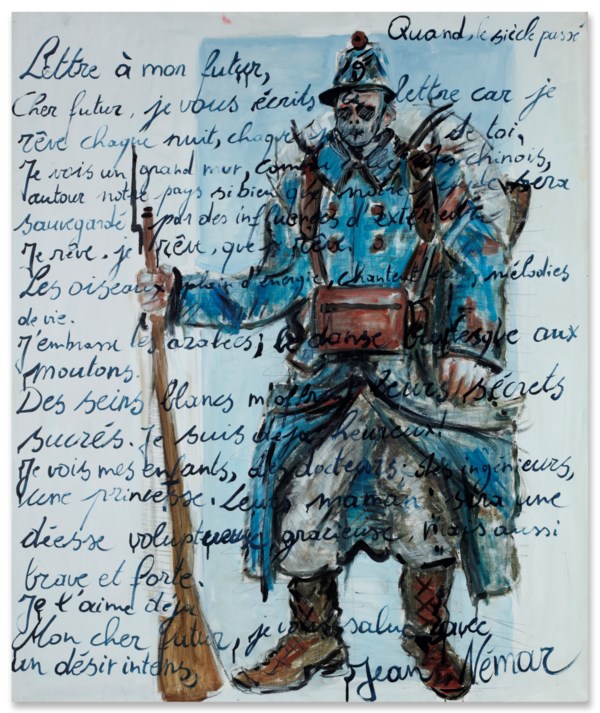 Quand, le siècle passé
Lettre à mon futur,
Cher futur, je vous écrits lettre car je
rêve chaque nuit, chaque de toi,
Je vois un grand mur, comme des chinois,
autour notre pays si bien que notre sera
sauvegardé par des influences d'extérieure
Je rêve, je rêve, que je rêve.
Les oiseaux, plein d'énergie, chantent mélodies
de vie.
J'embrasse les arabes; je danse burlesque aux
moutons.
Des seins blancs m'offrent leurs secrets
sucrés. Je suis déjà heureux!
Je vois mes enfants, des docteurs, des ingénieurs,
une princesse. Leur maman sera une
déesse voluptueuse, gracieuse, mais aussi
brave et forte.
Je t'aime déjà
Mon cher futur, je vous salue avec
un désir intens,
Jean Némar